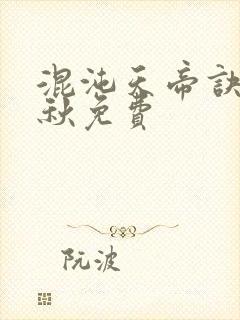 混沌天帝訣
秋免費
阮波